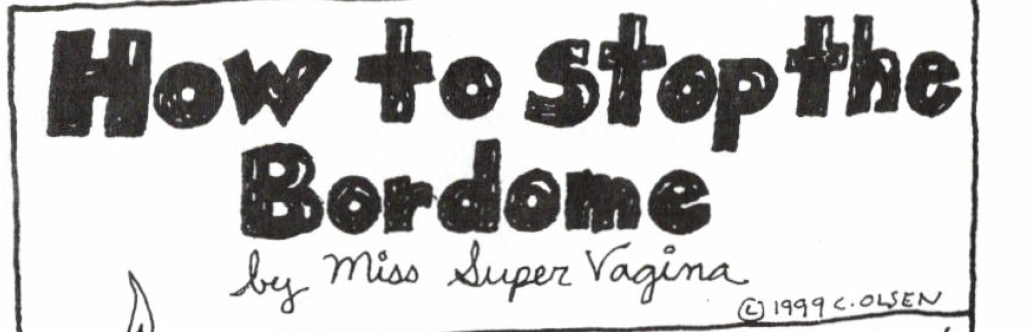 How to Stop the
Bordome
by Miss Super Vagina
© 1999 C. OLSEN